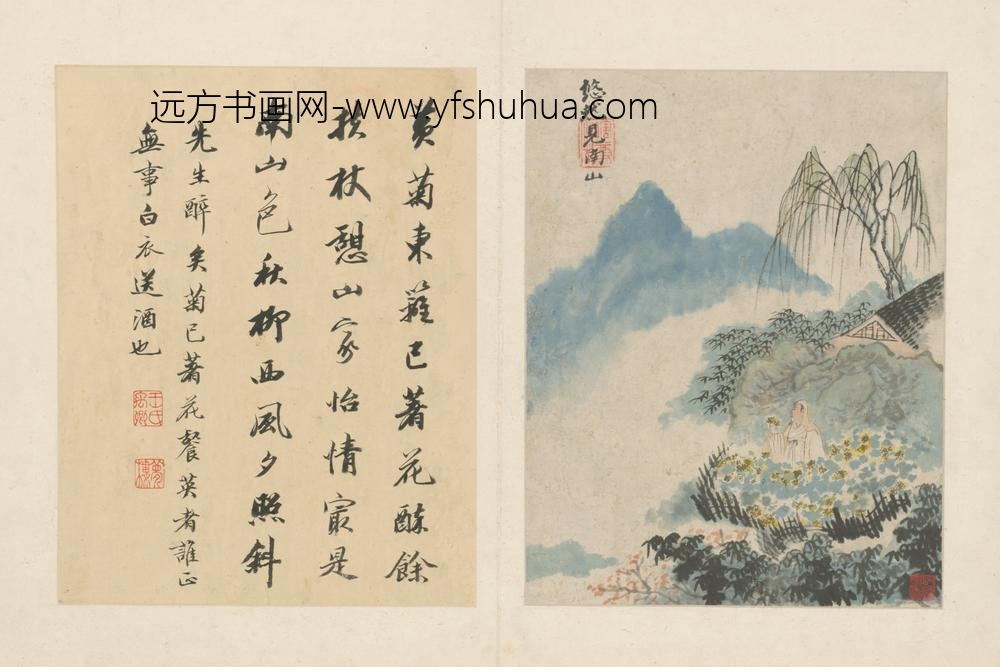 远方书画网-www.yfshuhua.com
悠然見南山
黃菊東籬已著花酔餘
扶杖憩山家怡情㝡是
南山色秋柳西風夕照斜
先生醉矣菊已著花餐英者誰正
無事白衣送酒也
王氏禹卿
夢樓